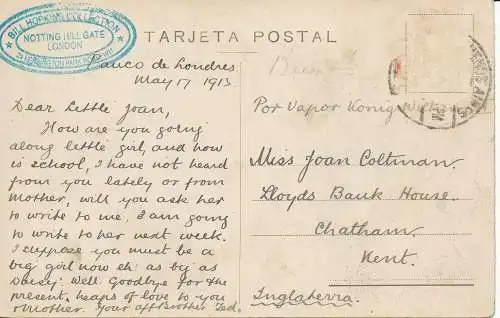 ★ BILL HOPKINS COLLECTION ★
NOTTING HILL GATE
LONDON
TARJETA POSTAL
Banco de Londres
May 17 1913
Dear Little Joan,
How are you going
along little girl, and how
is school, I have not heard
from you lately or from
Mother, will you ask her
to write to me, I am going
to write to her next week.
I suppose you must be a
big girl now eh! as big as
Daisy. Well Goodbye for the
present, heaps of love to you
& Mother. Your aff Brother Ted.
BUENOS AIRES
Por Vapor König
Miss Joan Coltman.
Lloyds Bank House.
Chatham.
Kent.
Inglaterra.